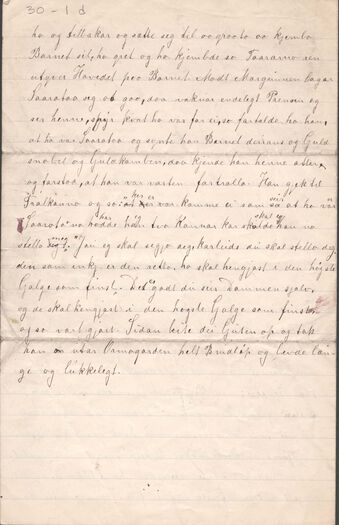 30 - 1 d
ho og tettakar og sette seg til aa groota aa kjemba
Barnet sit, ho gret og ho kjembde so Taararne ran
utyver Hovedet poo Barnet. Modt Morgunnen lagar
Saarataa seg aa goo, daa vaknar endelegt Prensen og
ser henne, spyr kvat ho var for ei, so fortalde ho han,
at ho var Saarataa og synte han Barnet derrans og Guld
snølet og Gulakamben, daa kjende han henne atter
og farstod, at han var varten fartrolla. Han gjek til
Trålkanno og so at her var kumme ei som sa at ho var
Saarata no hadde han two Kannur kar skulde han no
stella seg? "Jau eg skal segja deg karleide du skal stella deg,
den som inkj er den retto, ho skal hengjast i den høgste
Galge som finst." "Det godt du sein dommen sjølv,
og du skal hengjast i den høgste Galge som finst
og so vart gjort. Sidan leite dei Guten op og tok
han utar Ormagarden helt Brudlop og levde læn-
ge og lukkelegt.